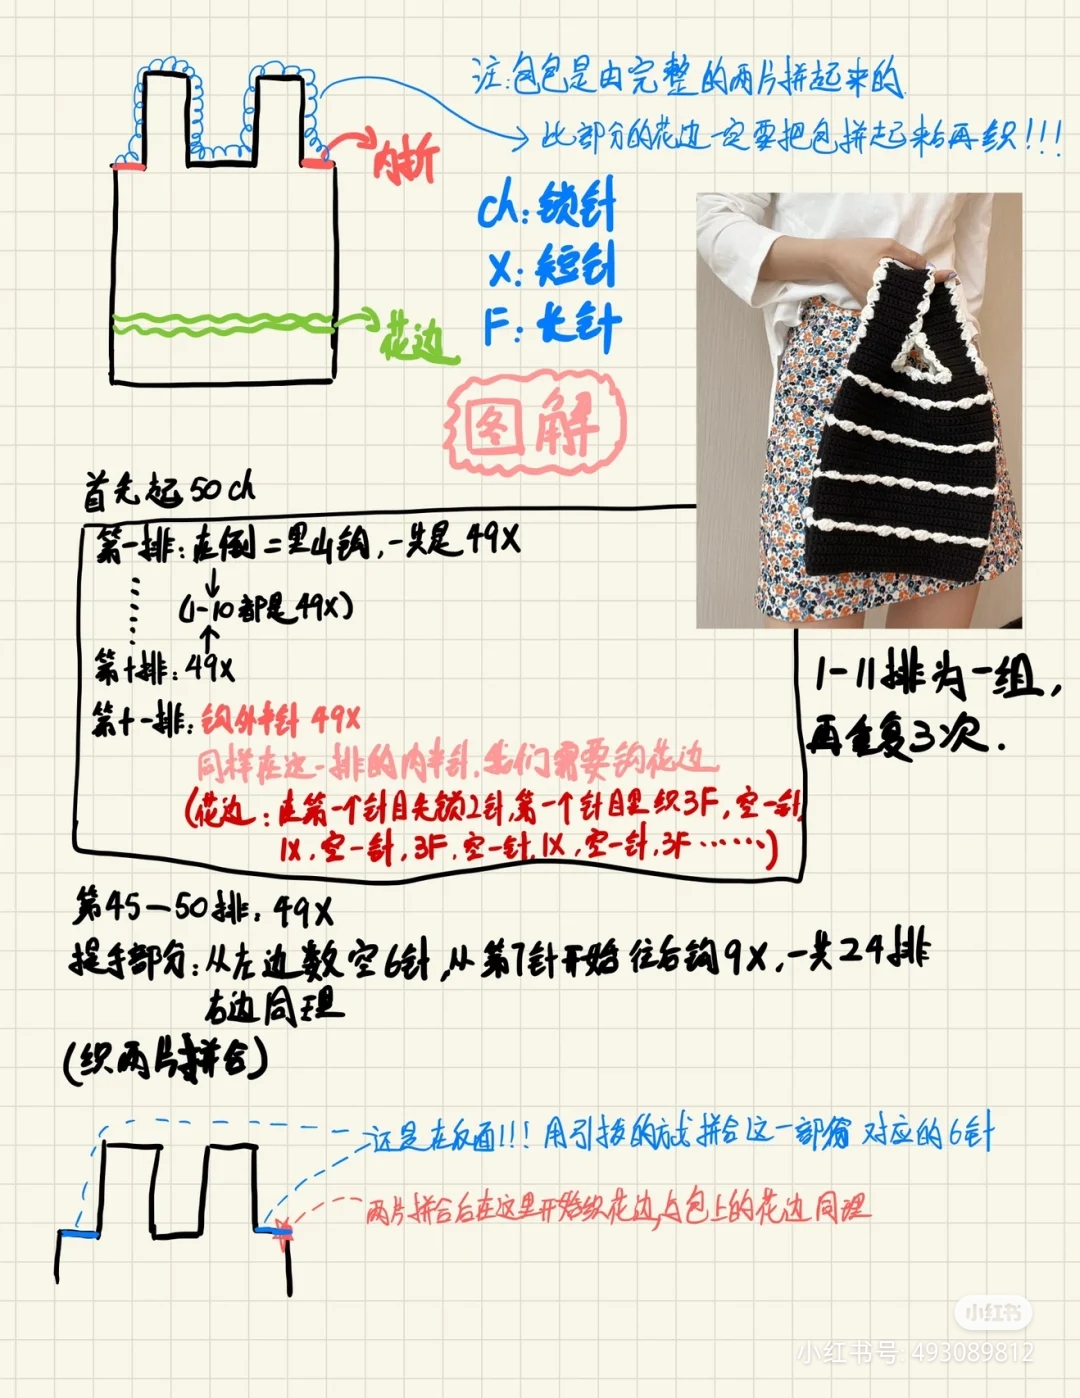 注:包包是由完整的两片拼起来的
此部分的花边一定要把包拼起来后再织!!!
内折
ch:锁针
X:短针
F:长针
花边
图解
首先起50ch
第一排:在倒二里山钩,一共是49X
(1-10都是49X)
第十排:49X
第十一排:钩外半针 49X
同样在这一排的内半针,我们需要钩花边
(花边:在第一个针目先锁2针,第一个针目里织3F,空一针,
1X,空一针,3F,空一针,1X,空一针,3F……)
1-11排为一组,
再重复3次.
第45-50排:49X
提手部分:从左边数空6针,从第7针开始往后钩9X,一共24排
右边同理
(织两片拼合)
还是在反面!!!用引拔的方式拼合这一部分 对应的6针
两片拼合后在这里开始织花边,与包上的花边同理
小红书
小红书号:493089812